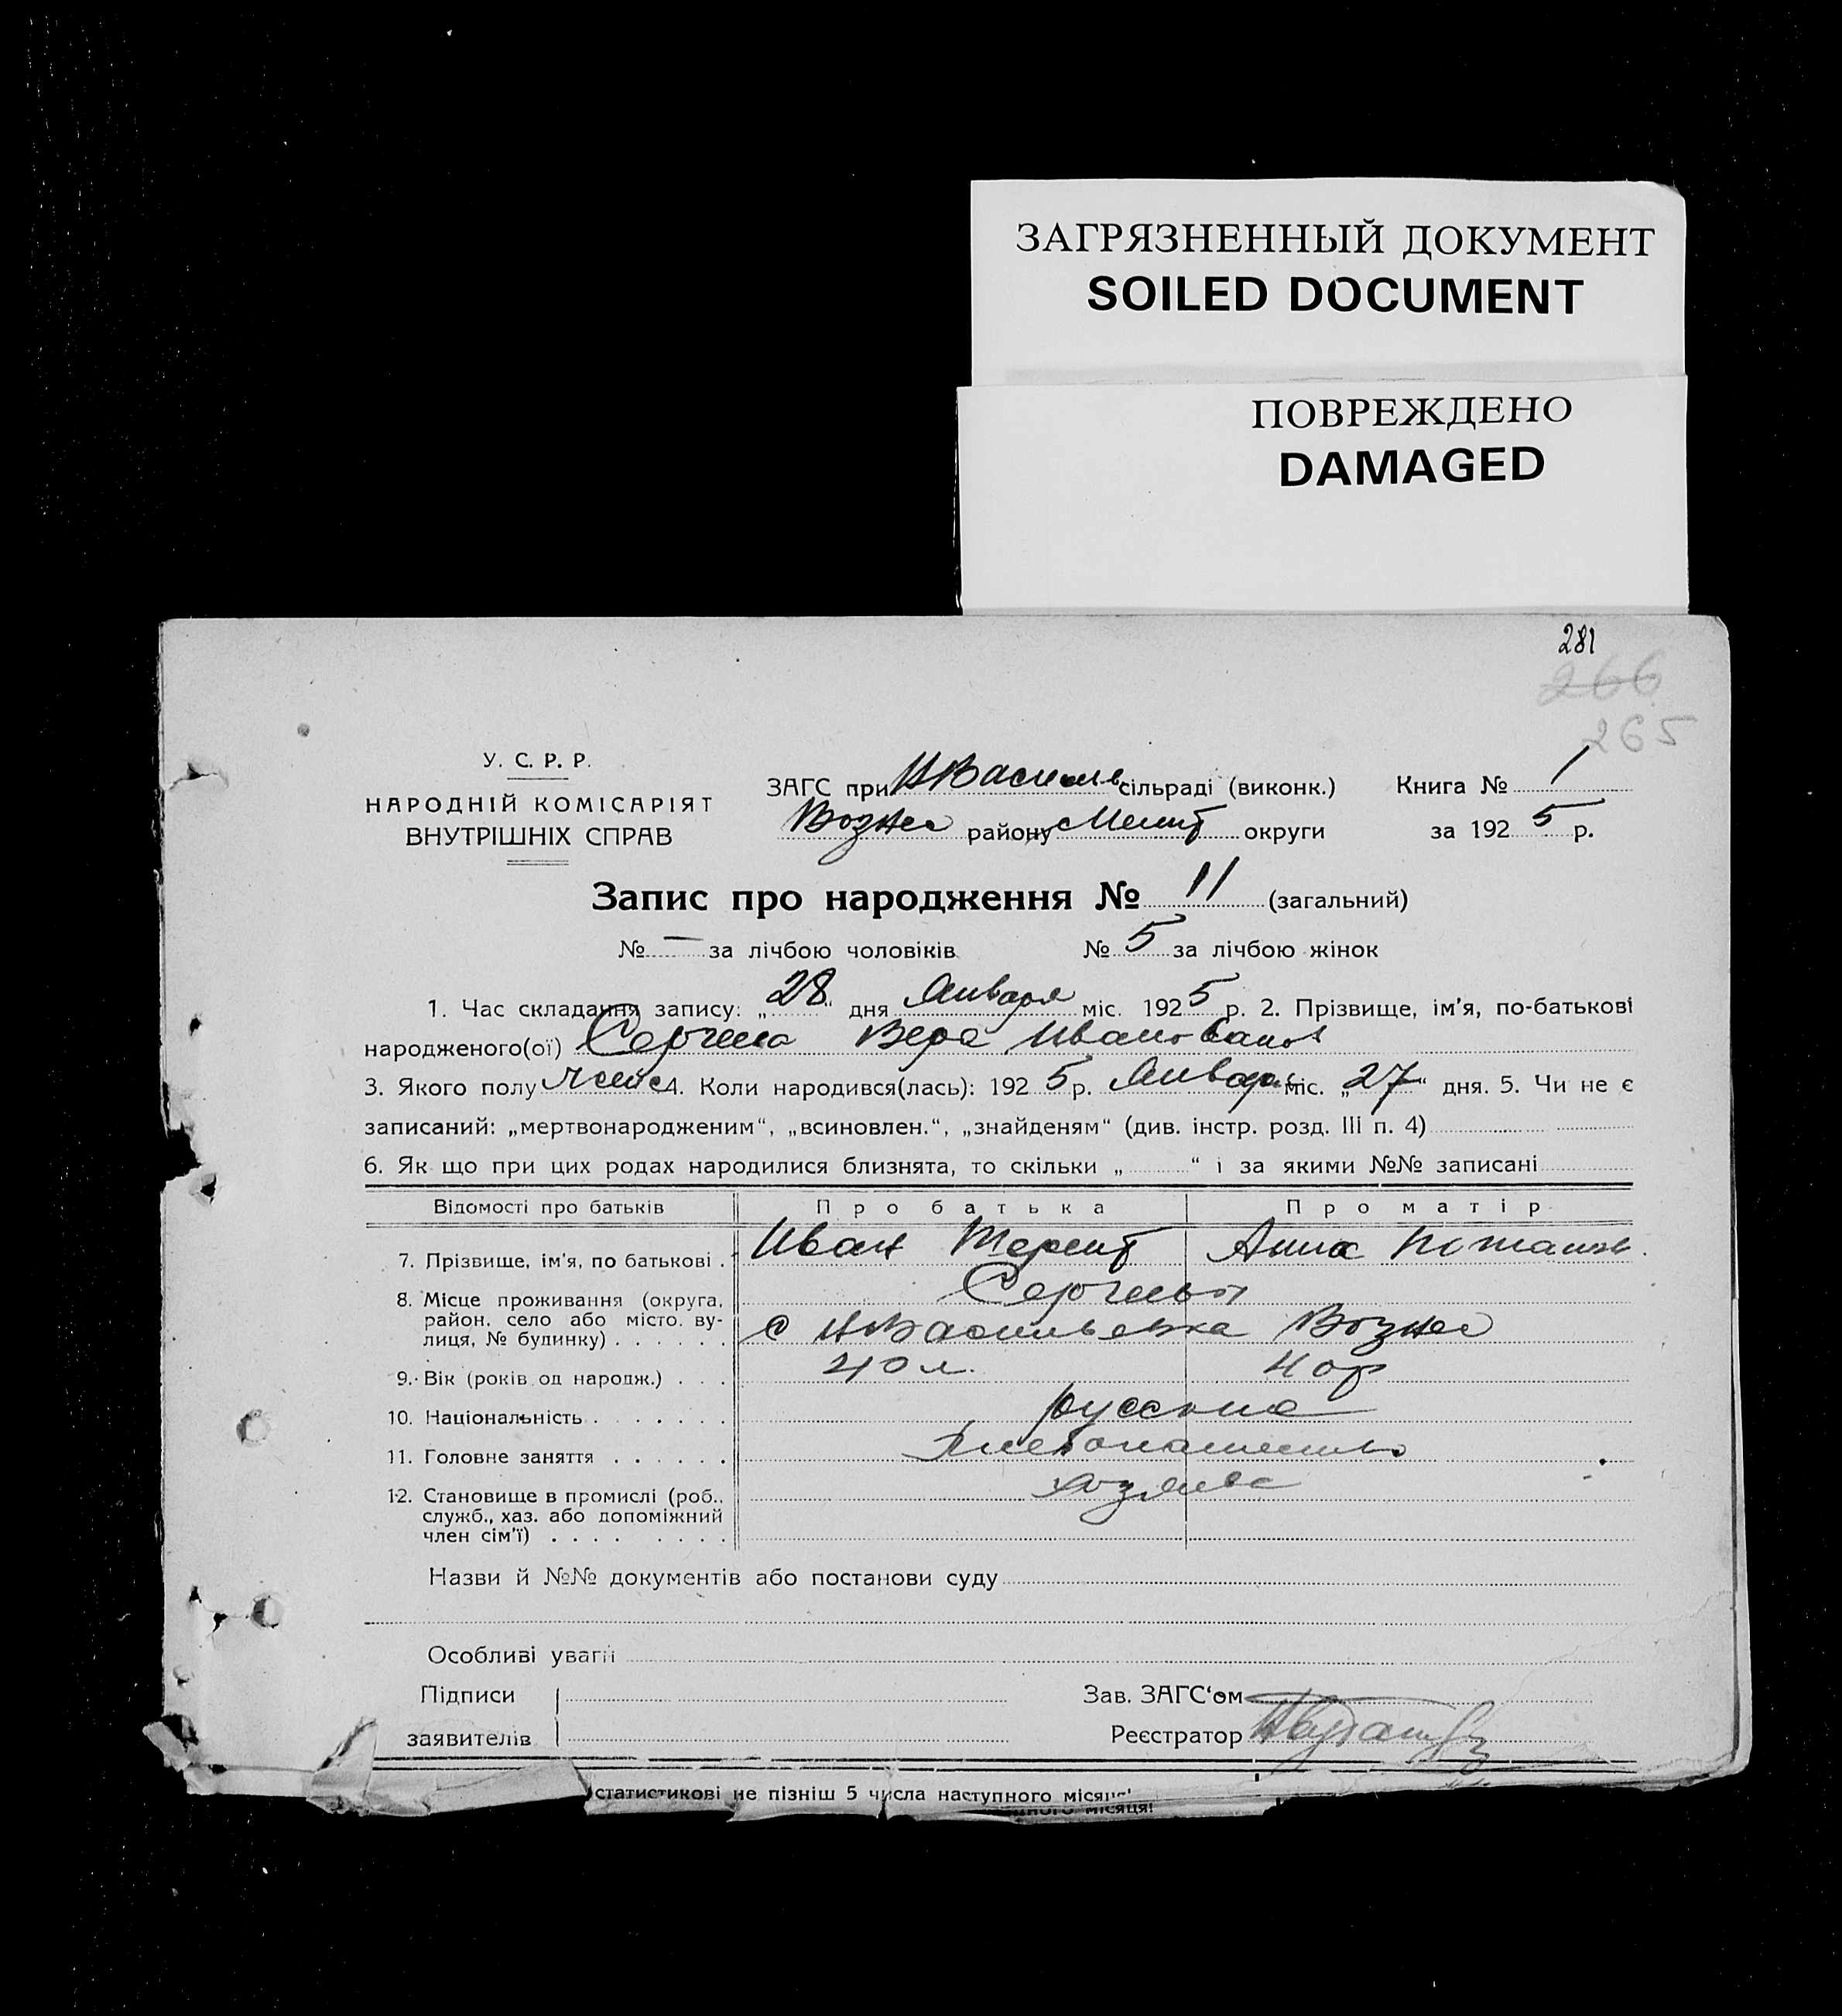 ЗАГРЯЗНЕННЫЙ ДОКУМЕНТ
SOILED DOCUMENT
ПОВРЕЖДЕНО
DAMAGED
281
266
265
У. С. Р. Р.
НАРОДНІЙ КОМІСАРІЯТ
ВНУТРІШНІХ СПРАВ
ЗАГС при НВасильев сільраді (виконк.) Книга № 1
Вознес району Мелит округи за 1925 р.
Запис про народження № 11 (загальний)
№ — за лічбою чоловіків № 5 за лічбою жінок
1. Час складання запису: „28“ дня Января міс. 1925 р. 2. Прізвище, ім'я, по-батькові
народженого(ої) Вера Ивановна
3. Якого полу женс 4. Коли народився(лась): 1925 р. Января міс. „27“ дня. 5. Чи не є
записаний: „мертвонародженим“, „всиновлен.“, „знайденям“ (див. інстр. розд. III п. 4)
6. Як що при цих родах народилися близнята, то скільки „ “ і за якими №№ записані
Відомості про батьків Про батька Про матір
7. Прізвище, ім'я, по батькові . Иван Терент Анна
8. Місце проживання (округа,
район, село або місто, ву-
лиця, № будинку) . . . . . . с НВасильевка Вознес
9. Вік (років од народж.) . . . 40 л. 40
10. Національність . . . . . . . русские
11. Головне заняття . . . . . . Хлебопашество
12. Становище в промислі (роб., хозяева
служб., хаз. або допоміжний
член сім'ї) . . . . . . . .
Назви й №№ документів або постанови суду
Особливі уваги
Підписи
заявителів
Зав. ЗАГС'ом
Реєстратор
статистикові не пізніш 5 числа наступного місяця!
місяця!